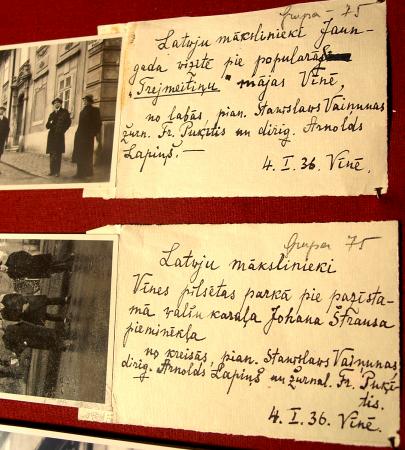 Grupa - 75
Latvju mākslinieki Jaun-
gada vizītē pie populārās
"Trejmeitiņu" mājas Vīnē,
no labās, pian. Staņislavs Vaiņunas,
žurn. Fr. Puķītis un diriģ. Arnolds
Lapiņš.—
4. I. 36. Vīnē.
Grupa 75
Latvju mākslinieki
Vīnes pilsētas parkā pie pazīsta-
mā valšu karaļa Johana Štrausa
pieminekļa
no kreisās, pian. Staņislavs Vaiņunas,
diriģ. Arnolds Lapiņš un žurnal. Fr. Puķī-
tis.
4. I. 36. Vīnē.